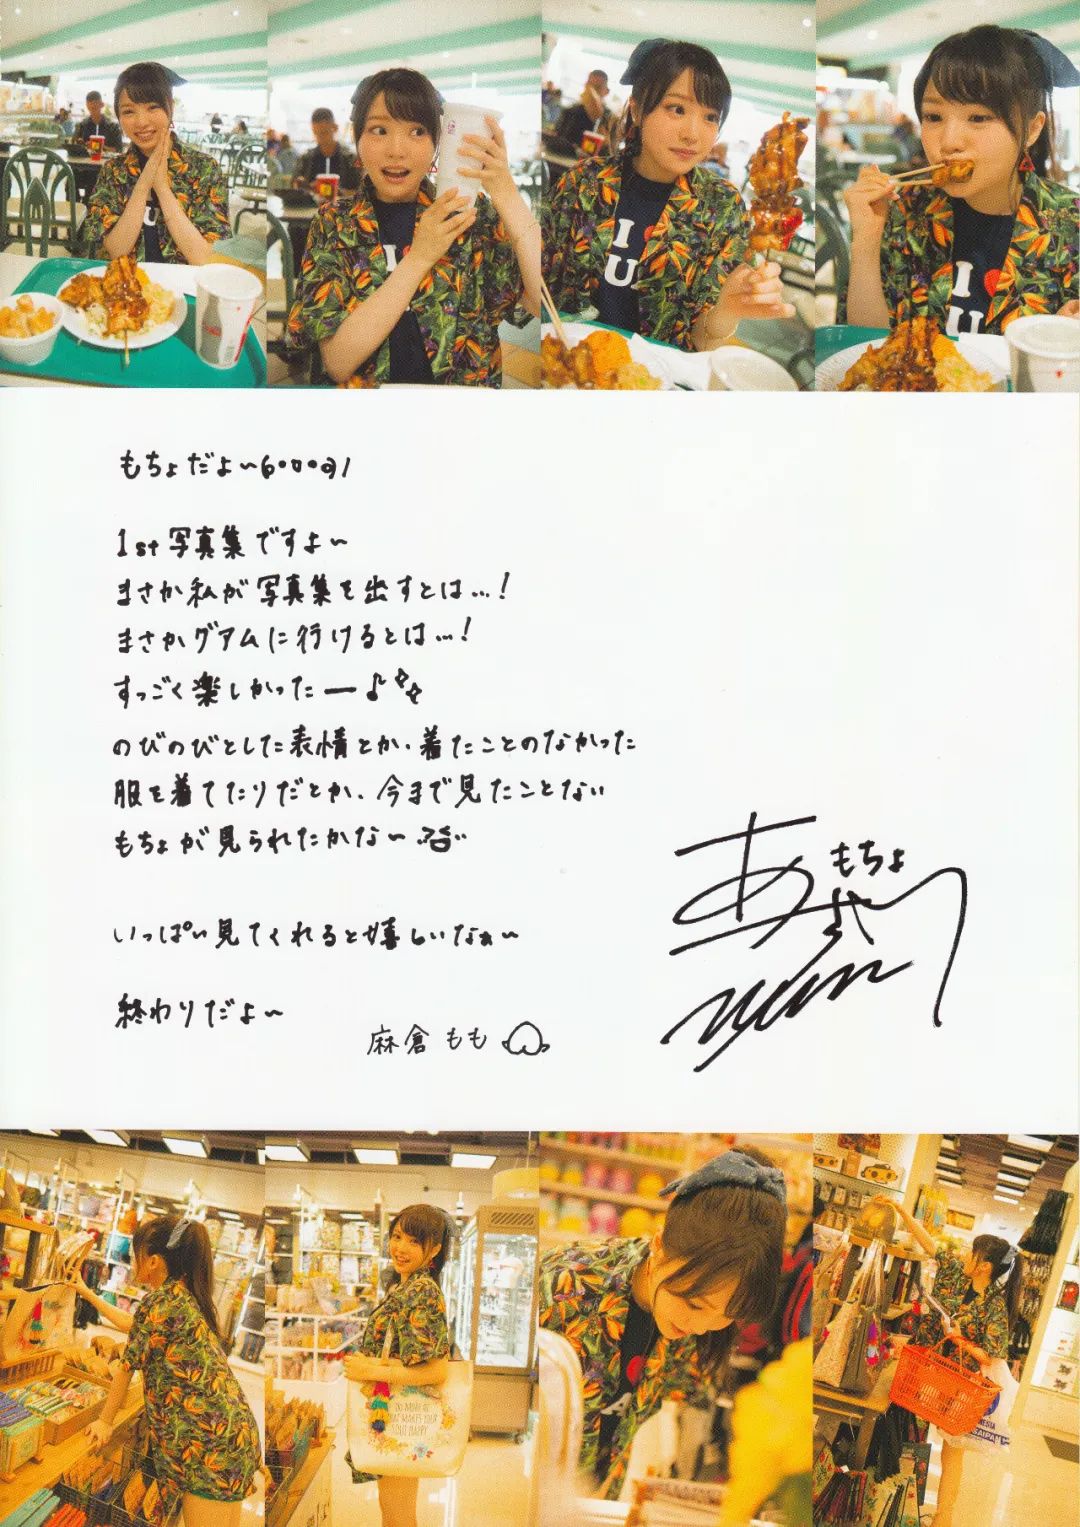 I
I
U
I
U
もちょだよ〜(・0・)
1st写真集ですよ〜
まさか私が写真集を出すとは…!
まさかグアムに行けるとは…!
すっごく楽しかったー♪
のびのびとした表情とか、着たことのなかった
服を着てたりだとか、今まで見たことない
もちょが見られたかな〜
いっぱい見てくれると嬉しいなぁ〜
終わりだよ〜
麻倉 もも
もちょ
DO MORE OF
WHAT MAKES YOUR
SOUL HAPPY
SAIPAN